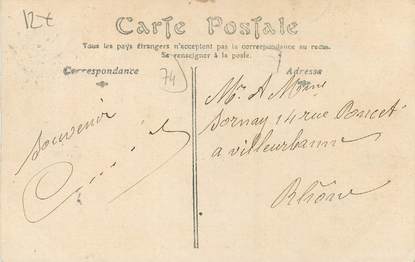 12€
Carte Postale
Tous les pays étrangers n'acceptent pas la correspondance au recto.
Se renseigner à la poste.
Correspondance
74
Adresse
souvenir
Mr & Mme
Sornay 14 rue Poncet
a villeurbanne
Rhône